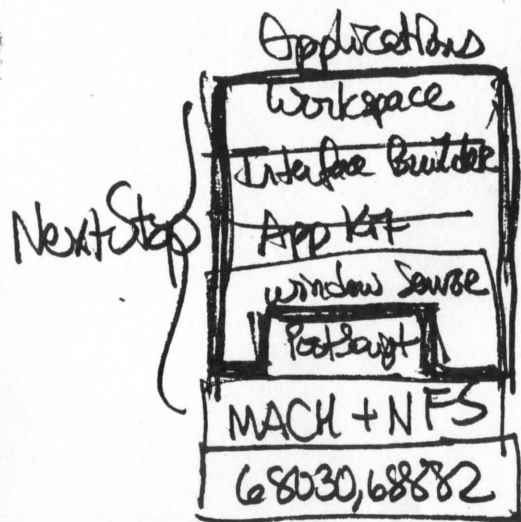 Applications
Workspace
Interface Builder
NextStep
App Kit
Window Server
PostScript
MACH + NFS
68030,68882